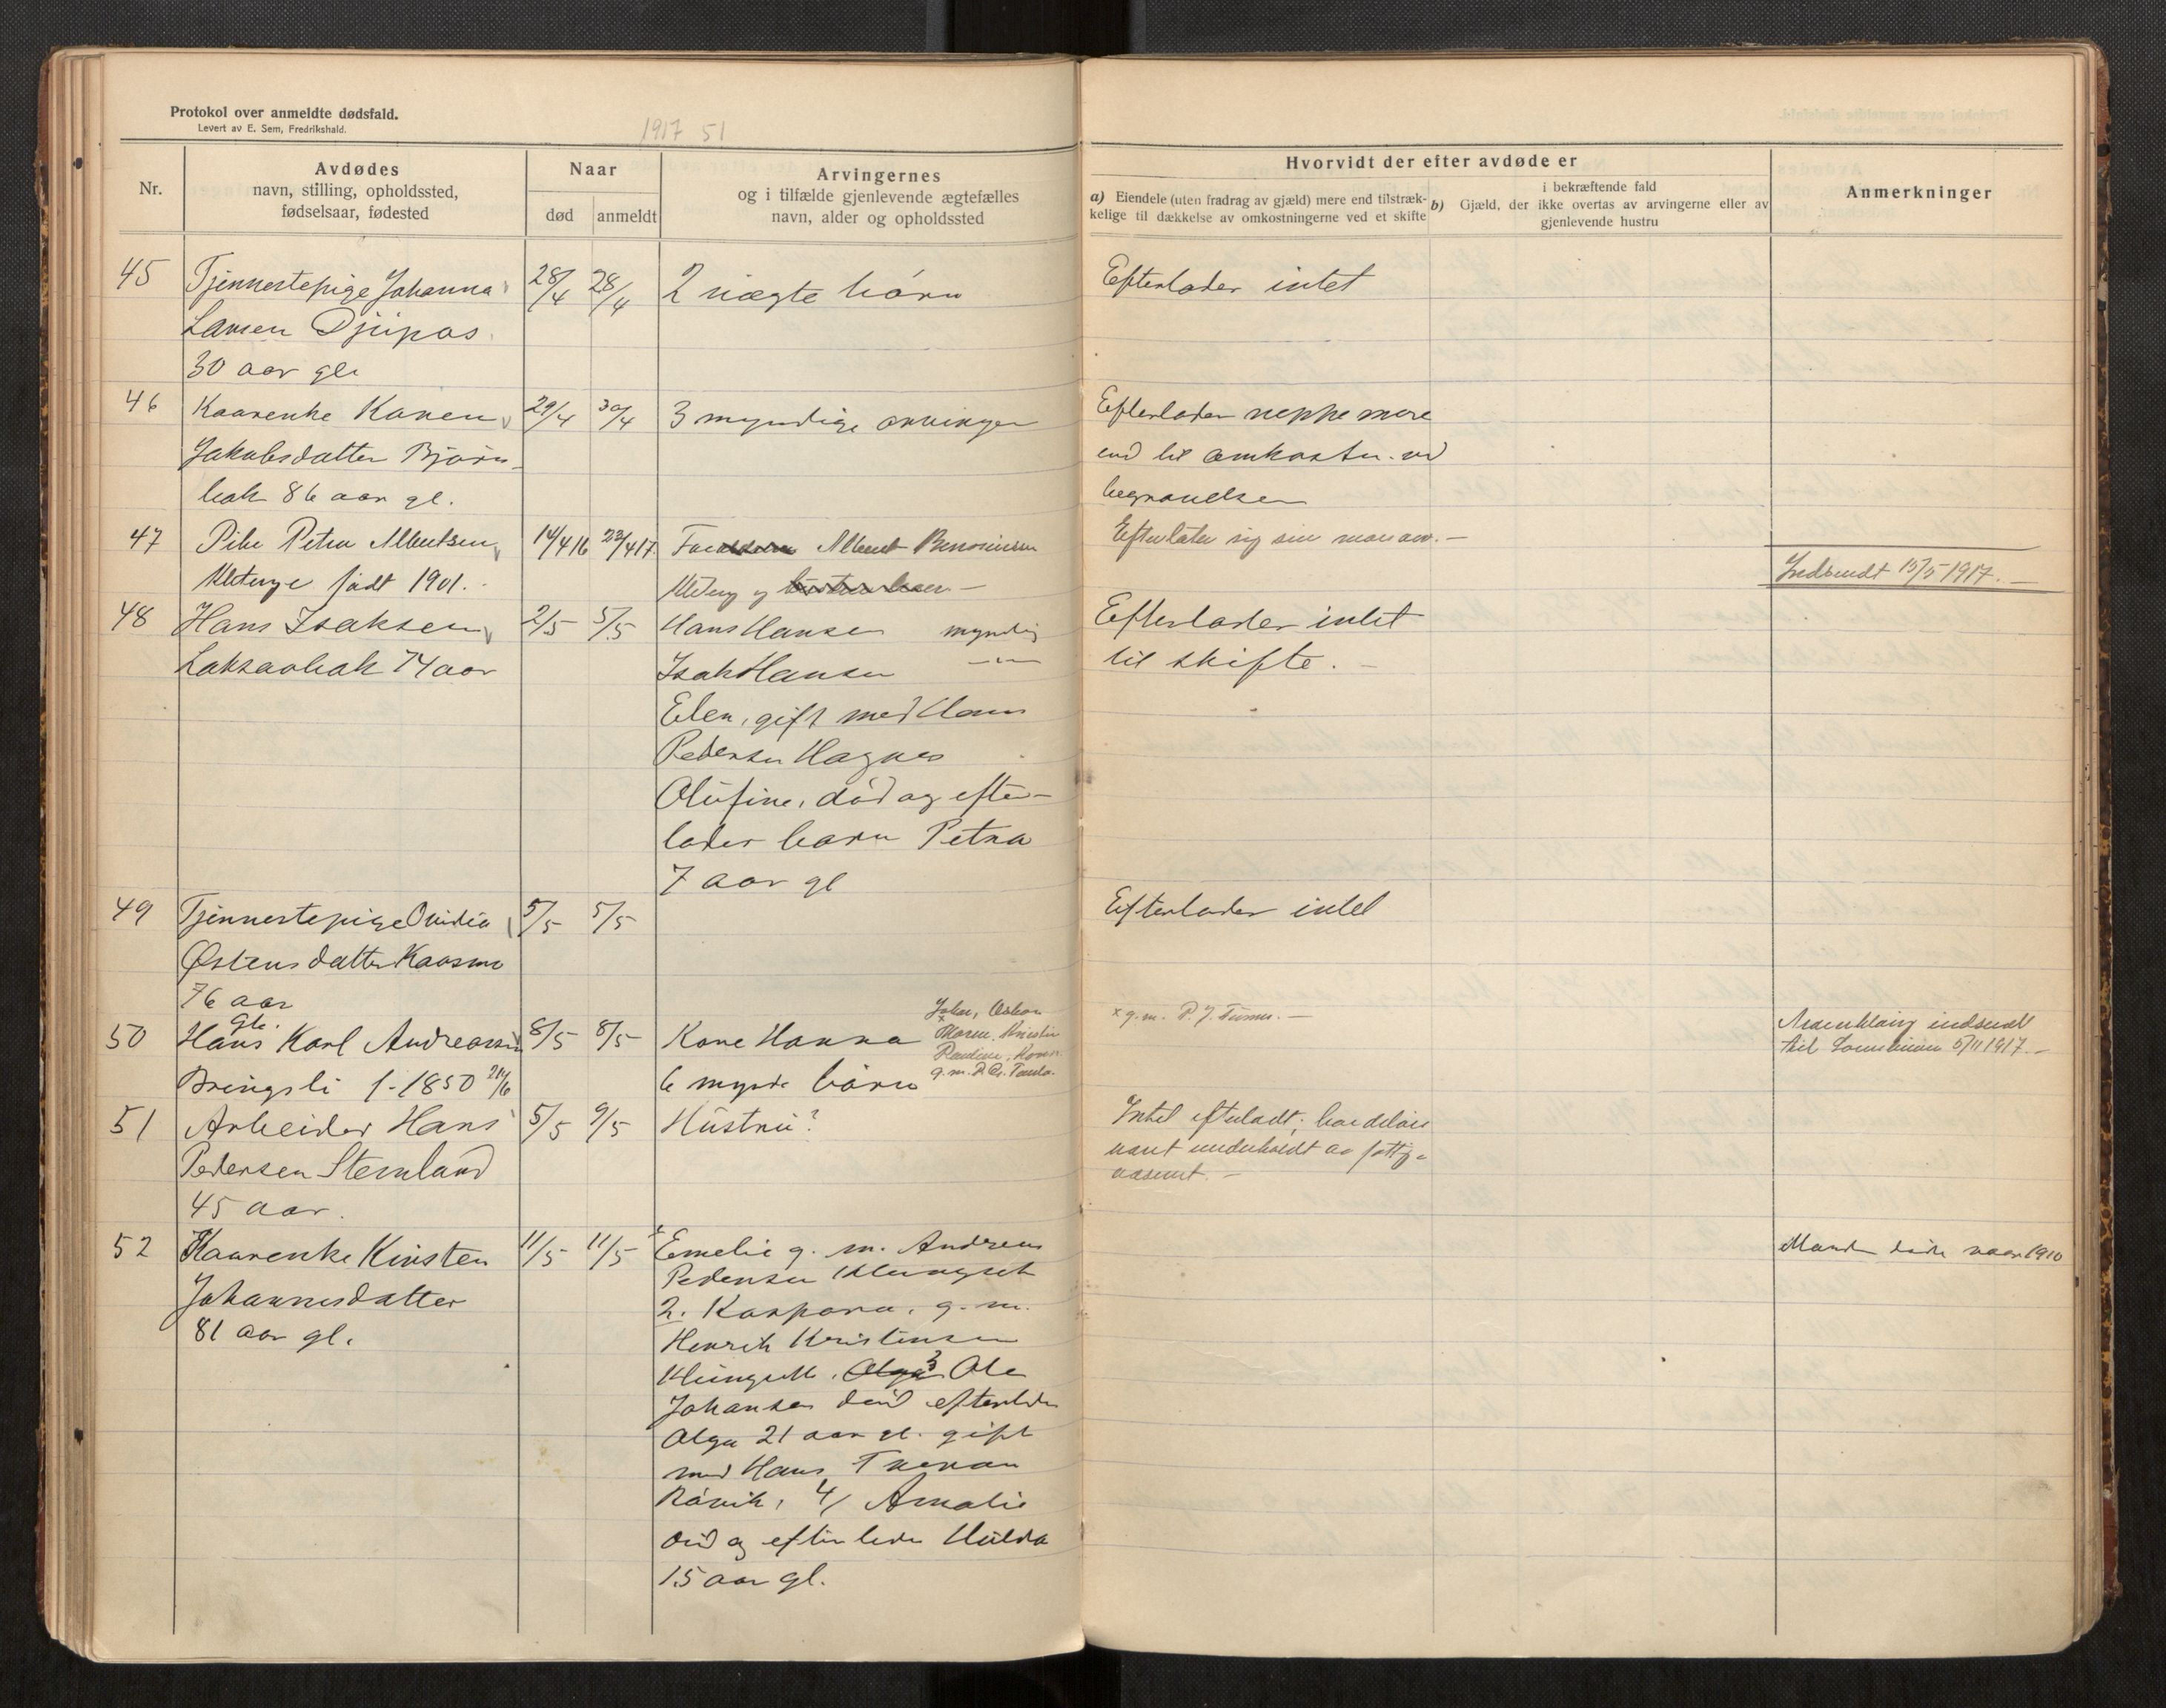 Protokol over anmeldte dødsfald.
Levert av E. Sem, Fredrikshald.
1917 51
Nr.
Avdødes
navn, stilling, opholdssted,
fødselsaar, fødested
Naar
død
anmeldt
Arvingernes
og i tilfælde gjenlevende ægtefælles
navn, alder og opholdssted
Hvorvidt der efter avdøde er
a) Eiendele (uten fradrag av gjæld) mere end tilstræk-
kelige til dækkelse av omkostningerne ved et skifte
i bekræftende fald
b) Gjæld, der ikke overtas av arvingerne eller av
gjenlevende hustru
Anmerkninger
45
Tjennestepige Johanna
Larsen Djupos
30 aar gl.
28/4
28/4
2 uægte børn
Efterlader intet
46
Kaarenke Karen
Jakobsdatter Bjørn-
bak 86 aar gl.
29/4
30/4
3 myndige arvinger
Efterlader neppe mere
end til omkostn. ved
begravelsen
47
Pike Petra Albertsen
født 1901.
14/4 16
23/4 17
Albert
og
Efterlater sig sin
Indsendt 15/5 1917.
48
Hans Isaksen
Laksaabak 74 aar
2/5
5/5
Hans Hansen myndig
Isak Hansen
Elen, gift med Hans
Pedersen Hagnes
Olufine, død og efter-
lader barn Petra
7 aar gl
Efterlader intet
til skifte.
49
Tjennestepige Ovidia
Østensdatter Kaasmo
76 aar
gl.
5/5
5/5
Efterlader intet
50
Hans Karl Andreassen
Bringsli f. 1850 24/6
8/5
8/5
Kone Hanna
6 mynd. børn
John, Oskar
Maren, Kristin
Pauline,
x g.m. P. J.
indsendt
til 5/11 1917.
51
Arbeider Hans
Pedersen Stemland
45 aar.
5/5
9/5
Hustru?
Intet efterladt; har delvis
vært underholdt av fattig-
væsenet.
52
Kaarenke Kirsten
Johannesdatter
81 aar gl.
11/5
11/5
Emelie g. m. Andreas
Pedersen Klungset
2. Kaspara, g. m.
Henrik Kristensen
Klungset. Olga 3 Ole
Johansen død efterlader
Olga 21 aar gl. gift
med Hans
Røvik, 4/ Amalie
død og efterlader Hulda
15 aar gl.
Manden døde 1910